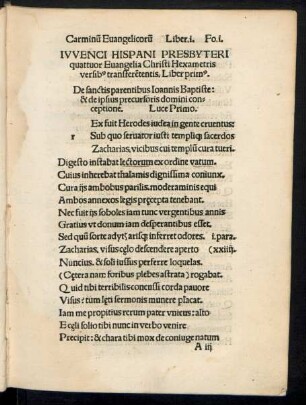 Carminū Euangelicorū Liber.i. Fo.i.
IVVENCI HISPANI PRESBYTERI
quattuor Euangelia Christi Hexametris
versibꝰ transferētentis. Liber primꝰ.
De sanctis parentibus Ioannis Baptiste:
& de ipsius precursoris domini con-
ceptione. Luce Primo.
Ex fuit Herodes iudea in gente cruentus:
r Sub quo seruator iusti templiqꝫ sacerdos
Zacharias, vicibus cui templū cura tueri.
Digesto instabat lectorum ex ordine vatum.
Cuius inherebat thalamis dignissima coniunx.
Cura ijs ambobus parilis. moderaminis equi
Ambos annexos legis preçepta tenebant.
Nec fuit ijs soboles iam tunc vergentibus annis
Gratius vt donum iam desperantibus esset.
Sed quū sorte adytꝭ arisqꝫ inferret odores. i.para.
Zacharias, visus çęlo descendere aperto (xxiiij.
Nuncius. & soli iussus perferre loquelas.
(Cętera nam foribus plebes astrata) rogabat.
Quid tibi terribilis concussi corda pauore
Visus: tum lęti sermonis munere placat.
Iam me propitius rerum pater vnicus: alto
E cęli folio tibi nunc in verbo venire
Precipit: & chara tibi mox de coniuge natum
A iij